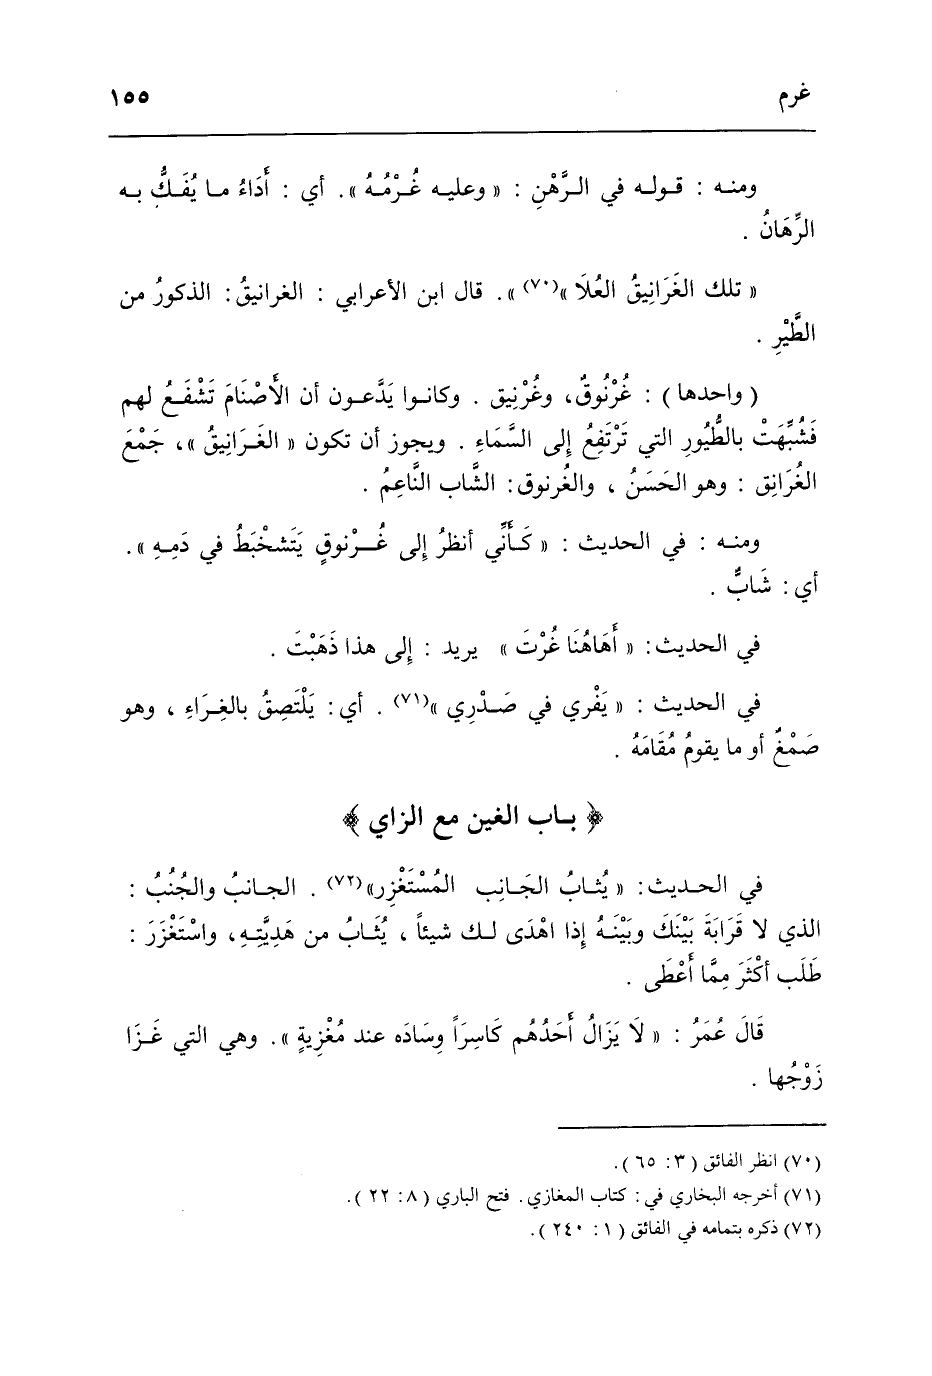 غرم ١٥٥
ومنه : قوله في الرَّهْنِ : « وعليه غُرْمُهُ ». أي : أَدَاءُ ما يُفَكُّ به
الرِّهَانُ .
« تلك الغَرَانِيقُ العُلَا »(٧٠) ». قال ابن الأعرابي : الغرانيقُ : الذكورُ من
الطَّيْرِ .
( واحدها ) : غُرْنُوقٌ، وغُرْنِيق . وكانوا يَدَّعون أن الأَصْنَامَ تَشْفَعُ لهم
فَشُبِّهَتْ بالطُّيُورِ التي تَرْتَفِعُ إلى السَّمَاءِ . ويجوز أن تكون « الغَرَانِيقُ »، جَمْعَ
الغُرَانِق : وهو الحَسَنُ ، والغُرنوق : الشَّاب النَّاعِمُ .
ومنه : في الحديث : « كَأَنِّي أنظرُ إلى غُرْنوقٍ يَتَشخْبَطُ في دَمِهِ ».
أي : شَابٌّ .
في الحديث : « أَهَاهُنَا غُرْتَ » يريد : إلى هذا ذَهَبْتَ .
في الحديث : « يَفْري في صَدْرِي »(٧١) . أي : يَلْتَصِقُ بالغِرَاءِ ، وهو
صَمْغٌ أو ما يقومُ مُقَامَهُ .
﴿ باب الغين مع الزاي ﴾
في الحديث : « يُثابُ الجَانِب المُسْتَغْزِر»(٧٢) . الجانبُ والجُنُبُ :
الذي لا قَرَابَةَ بَيْنَكَ وبَيْنَهُ إذا اهْدَى لك شيئاً ، يُثَابُ من هَدِيَّتِهِ، واسْتَغْزَرَ :
طَلَب أكْثَرَ مِمَّا أَعْطَى .
قَالَ عُمَرُ : « لَا يَزَالُ أَحَدُهُم كَاسِرَاً وِسَادَه عند مُغْزِيةٍ ». وهي التي غَزَا
زَوْجُها .
(٧٠) انظر الفائق ( ٣ : ٦٥ ).
(٧١) أخرجه البخاري في : كتاب المغازي . فتح الباري ( ٨ : ٢٢ ).
(٧٢) ذكره بتمامه في الفائق ( ١ : ٢٤٠ ).